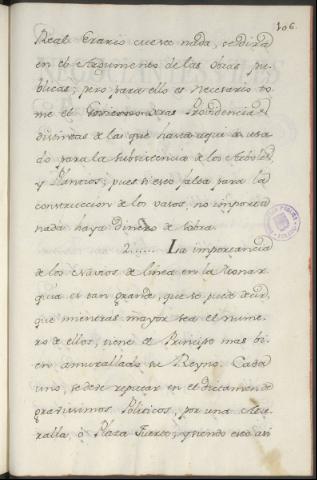 106.
Real Erario cueste nada, redbirá
en el Aumento de las Obras pu-
blicas; pero para ello es necesario to-
me el Govierno otras Providencias
distintas de las que hasta aqui ha usa-
do para la subsistencia de los Arboles
y Plantios; pues si esto falta para la
construccion de los vasos, no importa
nada haya Dinero de sobra.
2...... La importancia
de los Navios de linea en la Monar
quia es tan grande, que se puede decir,
que mientras mayor sea el nume-
ro de ellos, tiene el Principe mas bi-
en amurallado su Reyno. Cada
uno, se debe reputar en el dictamen de
gravisimos Politicos, por una Mu-
ralla, ò Plaza Fuerte, y siendo esto asi